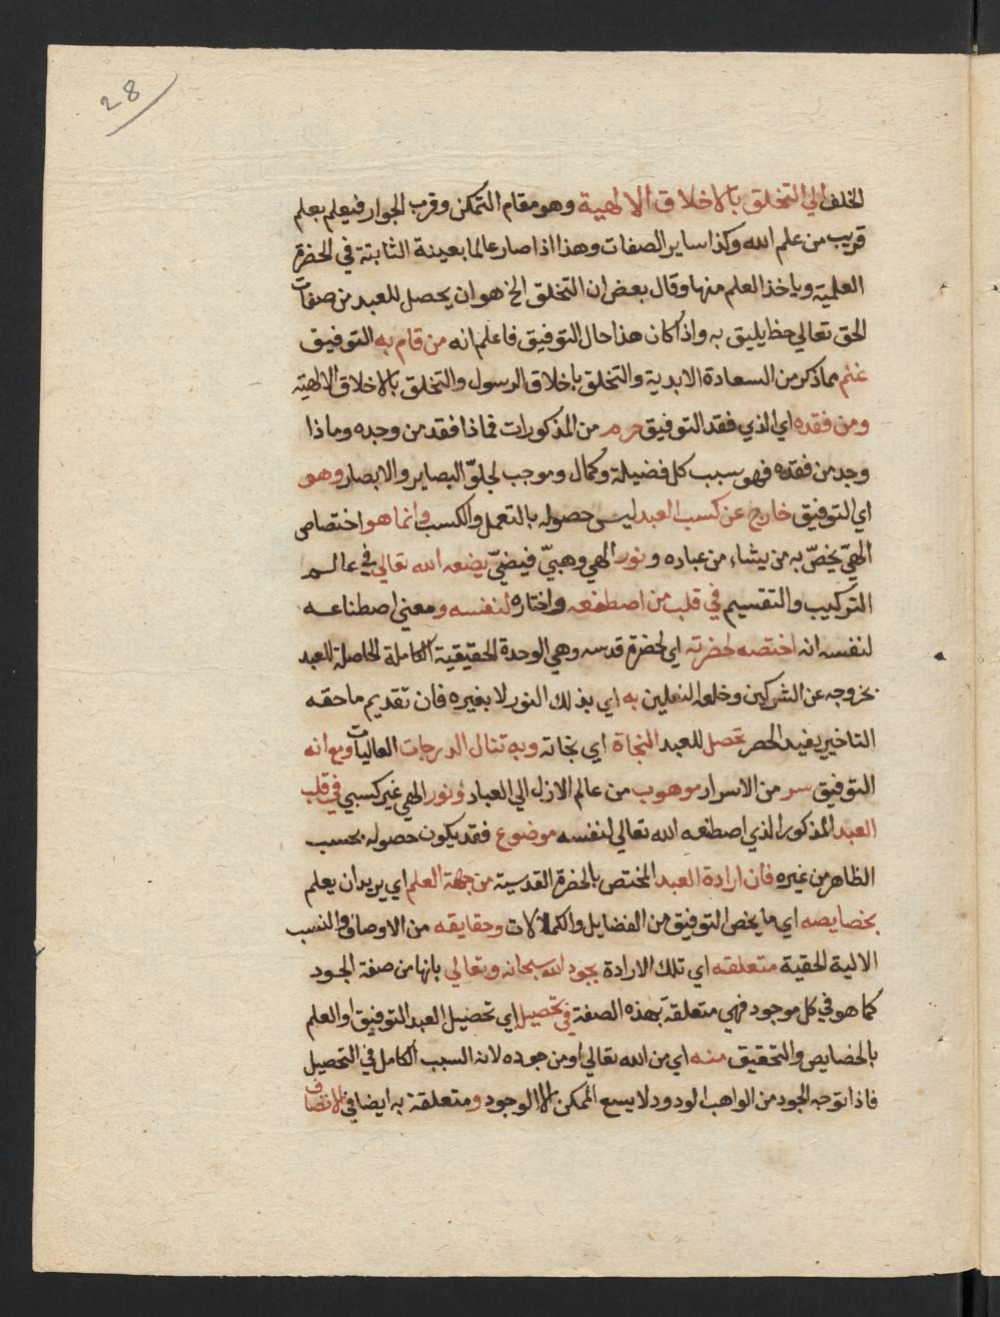 28
الخلف الي التخلق بالاخلاق الالهية وهو مقام التمكن وقرب الجوار فيعلم بعلم
قريب من علم الله وكذا ساير الصفات وهذا اذا صار عالما بعينة الثابتة في الحضرة
العلمية وياخذ العلم منها وقال بعض ان التخلق الخ هو ان يحصل للعبد من صفات
الحق تعالي حظ يليق به واذا كان هذا حال التوفيق فاعلم انه من قام به التوفيق
غنم مما ذكر من السعادة الابدية والتخلق باخلاق الرسول والتخلق بالاخلاق الالهية
ومن فقده اي الذي فقد التوفيق حرم من المذكورات فماذا فقد من وجده وماذا
وجد من فقده فهو سبب كل فضيلة وكمال وموجب لجلوّ البصاير والابصار وهو
اي التوفيق خارج عن كسب العبد ليس حصوله بالتعمل والكسب وانما هو اختصاص
الهيّ يخصّ به من يشاء من عباده ونور الهي وهبيّ فيضيّ يضعه الله تعالي في عالم
التركيب والتقسيم في قلب من اصطنعه واختاره لنفسه ومعني اصطناعه
لنفسه انه اختصه لحضرته اي لحضرة قدسه وهي الوحدة الحقيقية الكاملة الحاصلة للعبد
بخروجه عن الشركين وخلعه النعلين به اي بذلك النور لا بغيره فان تقديم ما حقه
التاخير يفيد الحصر تحصل للعبد النجاة اي نجاته وبه تنال الدرجات العاليات ومع انه
التوفيق سر من الاسرار موهوب من عالم الازل الي العباد ونور الهي غير كسبي في قلب
العبد المذكور الذي اصطنعه الله تعالي لنفسه موضوع فقد يكون حصوله بحسب
الظاهر من غيره فان ارادة العبد المختص بالحضرة القدسية من جهة العلم اي يريد ان يعلم
بخصايصه اي ما يخص التوفيق من الفضايل والكمالات وحقايقه من الاوصاف والنسب
الالية الحقية متعلقه اي تلك الارادة بجود الله سبحانه وتعالي بانها من صفة الجود
كما هو في كل موجود فهي متعلقة بهذه الصفة في تحصيل اي تحصيل العبد التوفيق او العلم
بالخصايص والتحقيق منه اي من الله تعالي او من جوده لانه السبب الكامل في التحصيل
فاذا توجه الجود من الواهب الودود لا يسع الممكن الا الوجود ومتعلقة به ايضا في الاتصاف